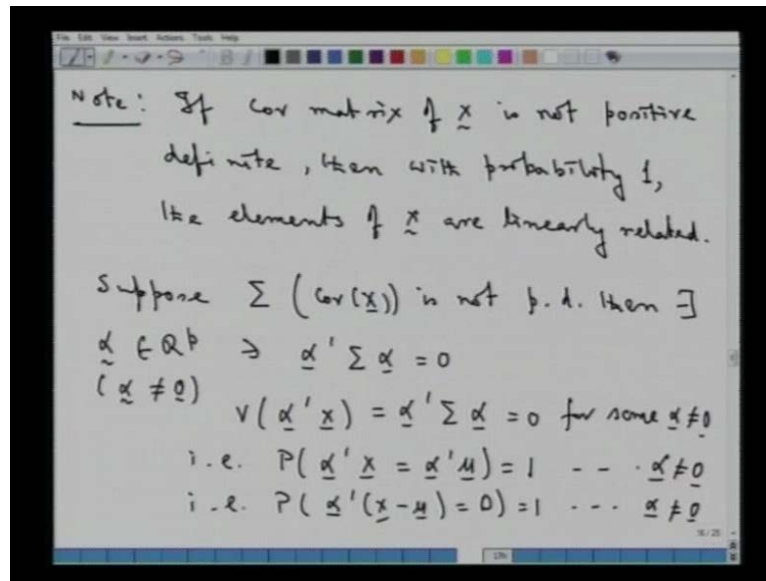 File Edit View Insert Actions Tools Help
Note: If Cov matrix of x is not positive
definite, then with probability 1,
the elements of x are linearly related.
Suppose Σ (Cov(x)) is not p.d. then ∃
α ∈ R^p ∋ α' Σ α = 0
(α ≠ 0)
V(α'x) = α' Σ α = 0 for some α ≠ 0
i.e. P(α'x = α'μ) = 1 -- · α ≠ 0
i.e. P(α'(x-μ) = 0) = 1 --- α ≠ 0